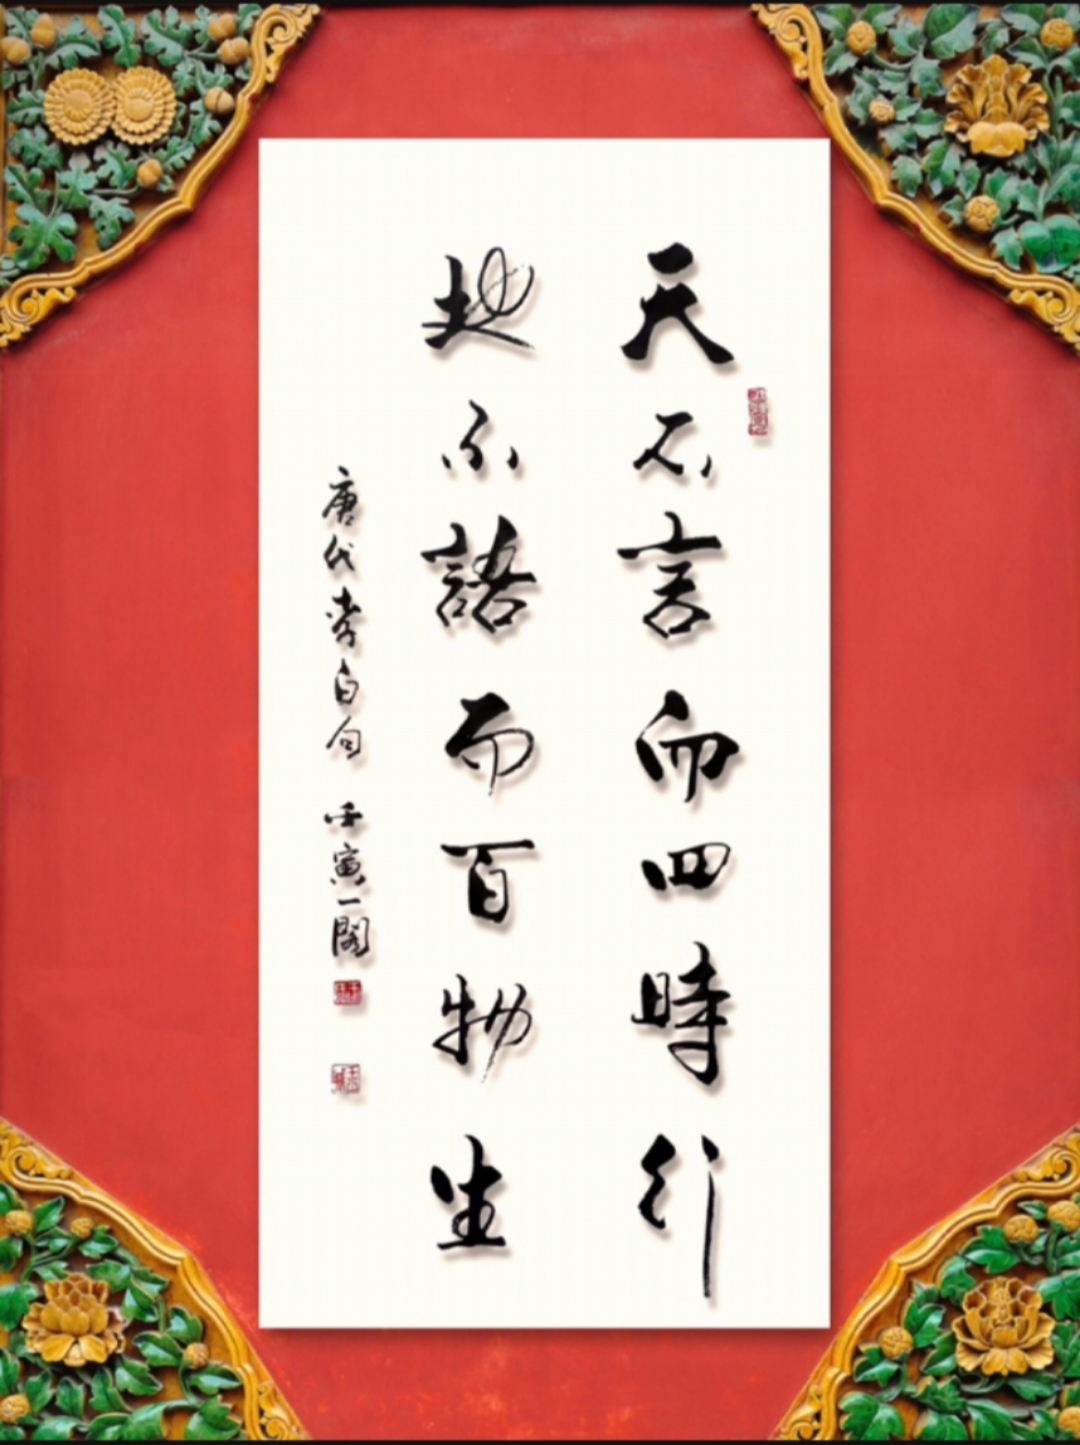 天不言而四時行
地不語而百物生
唐代李白句 壬寅一閣